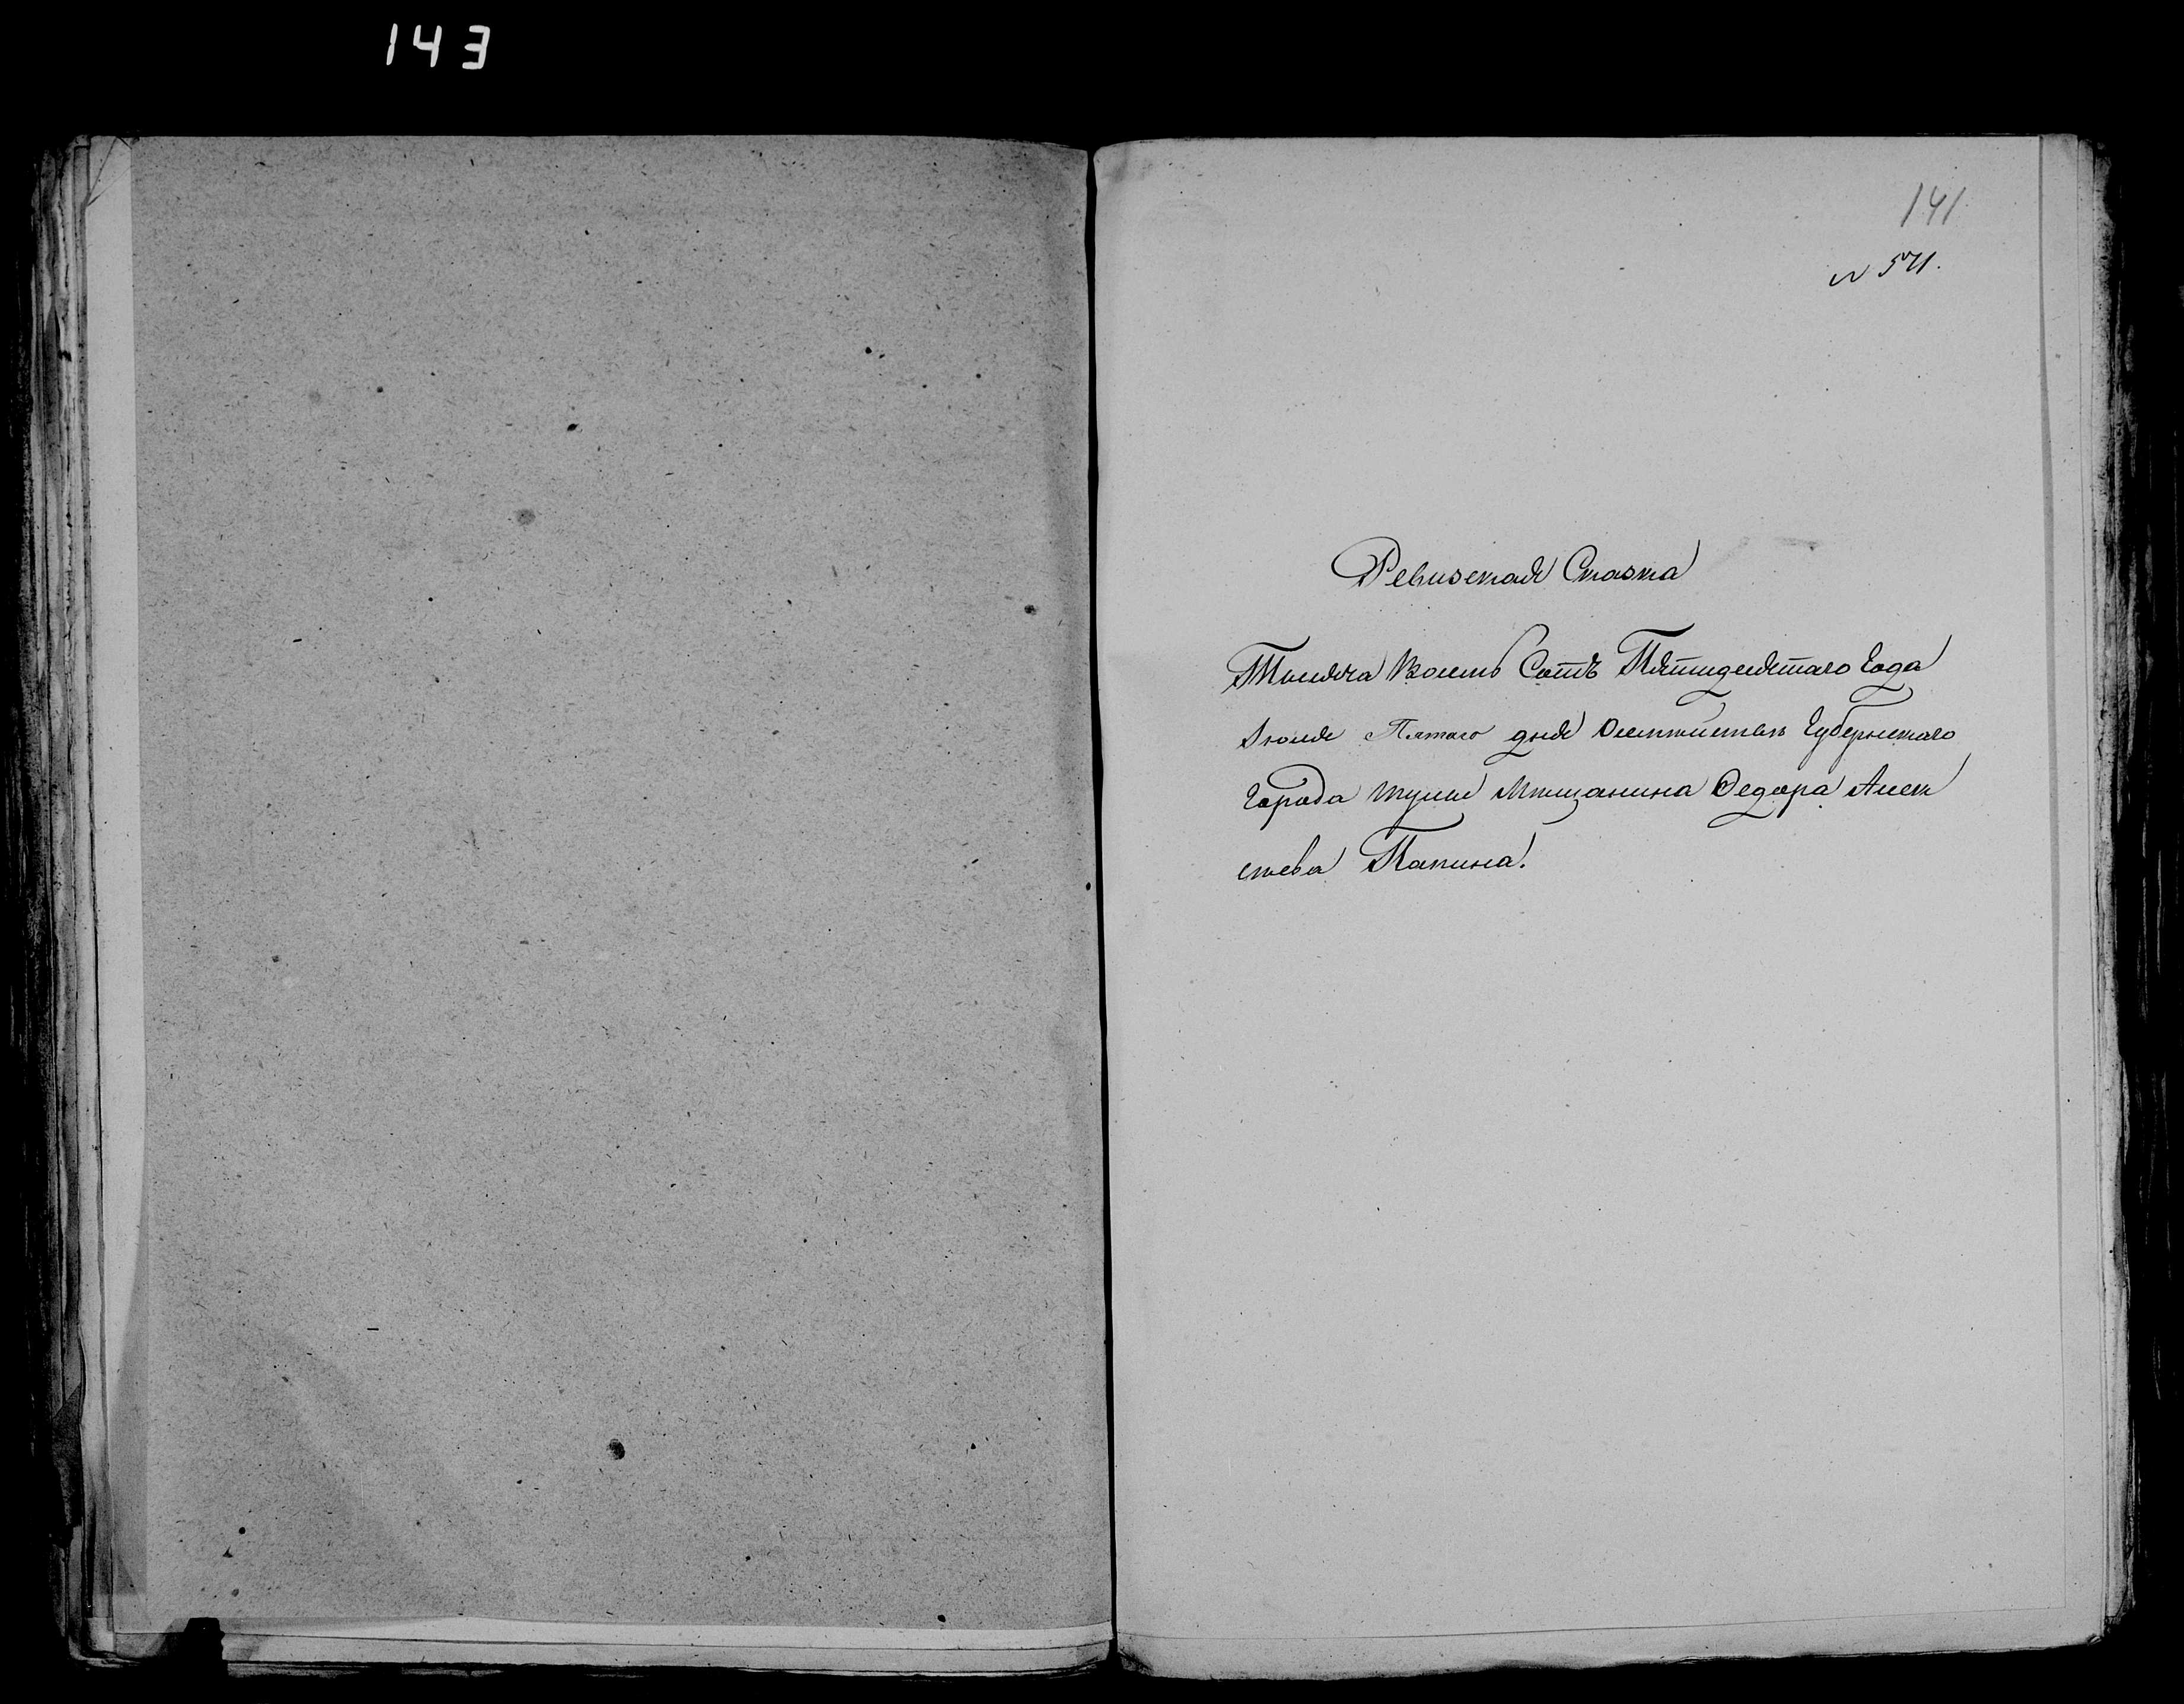 143
141
№ 571.
Ревизская Сказка
Тысяча Восемь Сотъ Пятидесятаго Года
Июля Пятаго дня Губернскаго
Города Тулы Мѣщанина Федора Алек
сѣева Папина.